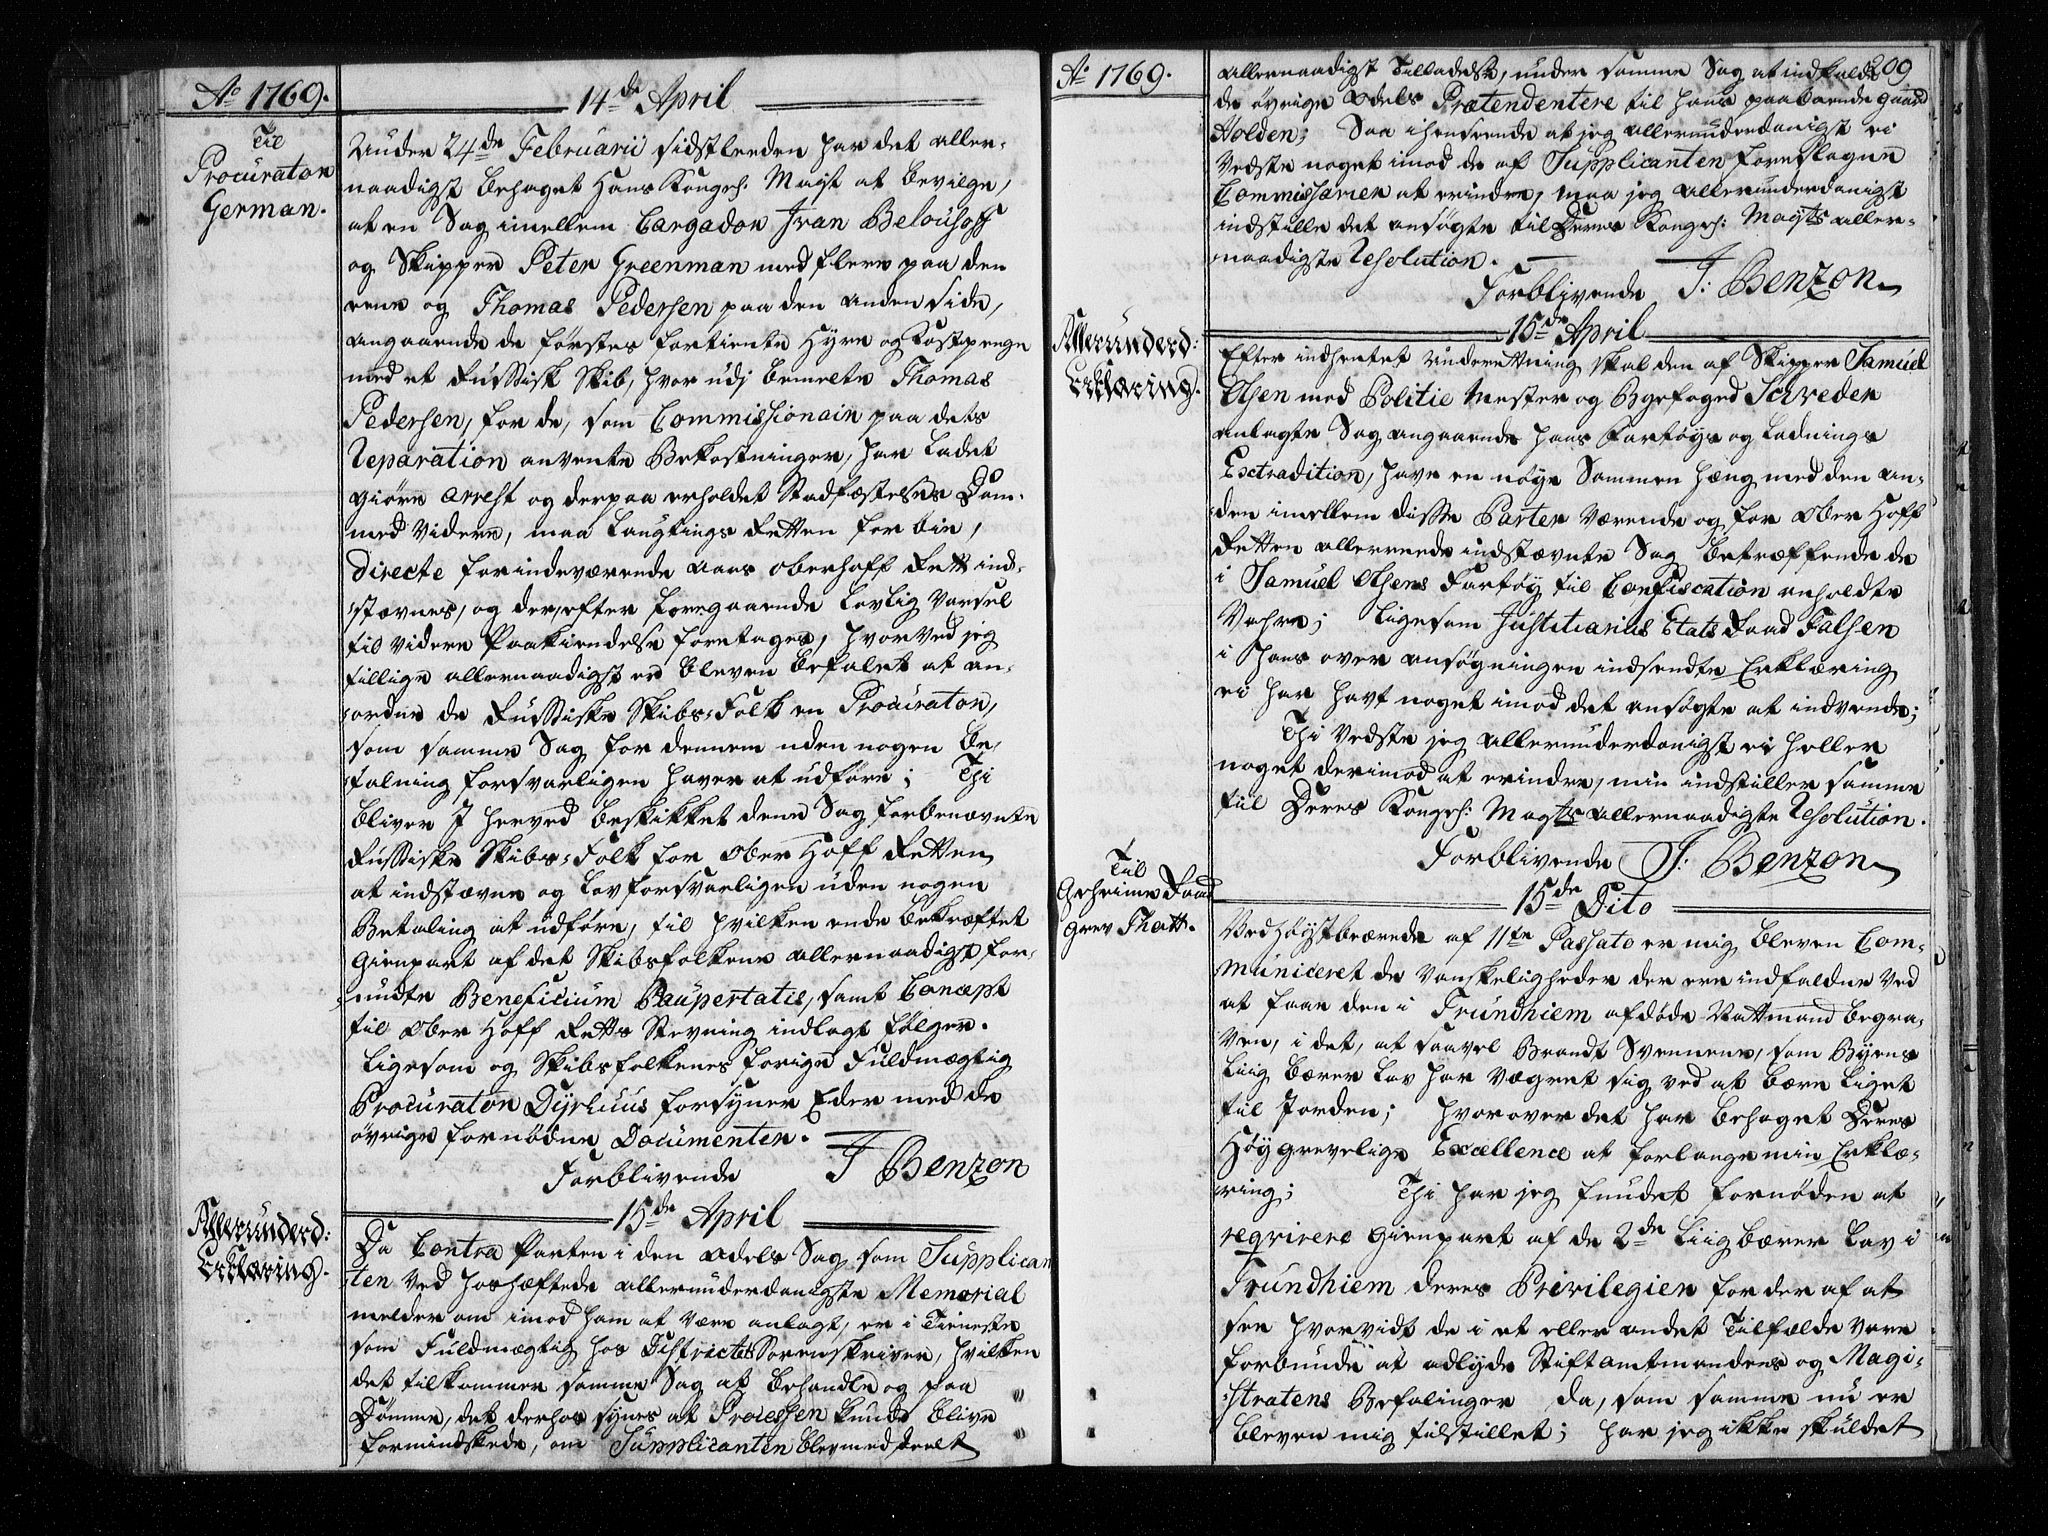 Ao 1769.
14de April
Til
Procurator
German.
Under 24de Februarii sidstleeden har det aller-
naadigst behaget Hans Kongel: Mayt at bevilge,
at en Sag imellem Cargador Ivan Belouhoff
og Skipper Peter Greenman med flere paa den
eene og Thomas Pedersen paa den anden side,
angaaende de førstes fortiente Hyre og Kostpenge
med et Russisk Skib, hvor udj bemelte Thomas
Pedersen, for de, som Commissionair paa dets
Reparation anvente Bekostninger, har ladet
giøre Arrest og derpaa erholdet Stadfæstelses Dom
med videre, maa Laugtings Retten forbie,
directe for indeværende Aars Oberhoff Rett ind-
stævnes, og der, efter foregaaende lovlig Varsel
til videre Paakiendelse foretages, hvorved jeg
tillige allernaadigst er bleven befalet at an-
ordne de Russiske Skibs-Folk en Procurator,
som samme Sag for dennem uden nogen Be-
talning forsvarligen haver at udføre; Thi
bliver I herved beskikket denne Sag forbenævnte
Russiske Skibs-Folk for Ober Hoff Retten
at indstævne og lovforsvarligen uden nogen
Betaling at udføre, til hvilken ende bekræftet
Gienpart af det Skibsfolkene allernaadigst for-
undte Beneficium Paupertatis, samt Concept
til Ober Hoff Retts Stevning indlagt følger.
Ligesom og Skibsfolkenes forige Fuldmægtig
Procurator Dyrhuus forsyner Eder med de
øvrige fornødne Documenter.
Forblivende J Benzon
15de April
Allerunderd:
Erklæring.
Da Contra Parten i den Odels Sag, som Supplican-
ten ved hoshæftede allerunderdanigste Memorial
melder om imod ham at være anlagt, er i Tieneste
som Fuldmægtig hos Districtets Sorenskriver, hvilken
det tilkommer samme Sag at behandle og paa
Dømme, det derhos synes at Processen kunde blive
formindskede, om Supplicanten blev meddeelt
Ao 1769.
209
allernaadigst Tilladelse, under samme Sag at indkalde
de øvrige Odels Prætendentere til hans paaboende Gaard
Holden; Saa ihenseende at jeg allerunderdanigst ei
vedste noget imod de af Supplicanten foreslagne
Commissarier at erindre, maa jeg allerunderdanigst
indstille det ansøgte til Deres Kongel: Mayts aller-
naadigste Resolution.
Forblivende J: Benzon
15de April
Allerunderd:
Erklæring.
Efter indhentet Underrettning skal den af Skipper Samuel
Olsen mod Politie Mester og Byefoged Schreder
anlagte Sag angaaende hans Fartøys og Ladnings
Extradition, have en nøye Sammen hæng med den an-
den imellem disse Parter værende og for Ober Hoff
Retten allereede indstævnte Sag betræffende de
i Samuel Olsens Fartøy til Confiscation anholdte
Vahre; Ligesom Justitiarius Etats Raad Falsen
i Hans over ansøgningen indsendte Erklæring
ei har havt noget imod det ansøgte at indvende;
Thi vedste jeg allerunderdanigst ei heller
noget derimod at erindre, men indstiller samme
til Deres Kongel: Mayts allernaadigste Resolution.
Forblivende J: Benzon
15de Dito
Til
Geheime Raad
Grev Thott.
Ved Høystbeærede af 11te Passato er mig bleven Com-
municeret de Vanskeligheder der ere indfaldne ved
at faae den i Trundhiem afdøde Nattmand begra-
ven, i det, at saavel Brandt Svennene, som Byens
Liig Bærer Lav har vægret sig ved at bære Liget
til Jorden; hvorover det har behaget Deres
Høygrevelige Excellence at forlange min Erklæ-
ring; Thi har jeg fundet fornøden at
reqvirere Gienpart af de 2de Liig bærer Lav i
Trundhiem deres Privilegier for der af at
see hvorvidt de i et eller andet Tilfælde vare
forbunde at adlyde Stiftamtmandens og Magi-
stratens Befalinger da, som samme nu er
bleven mig tilstillet; har jeg ikke skuldet